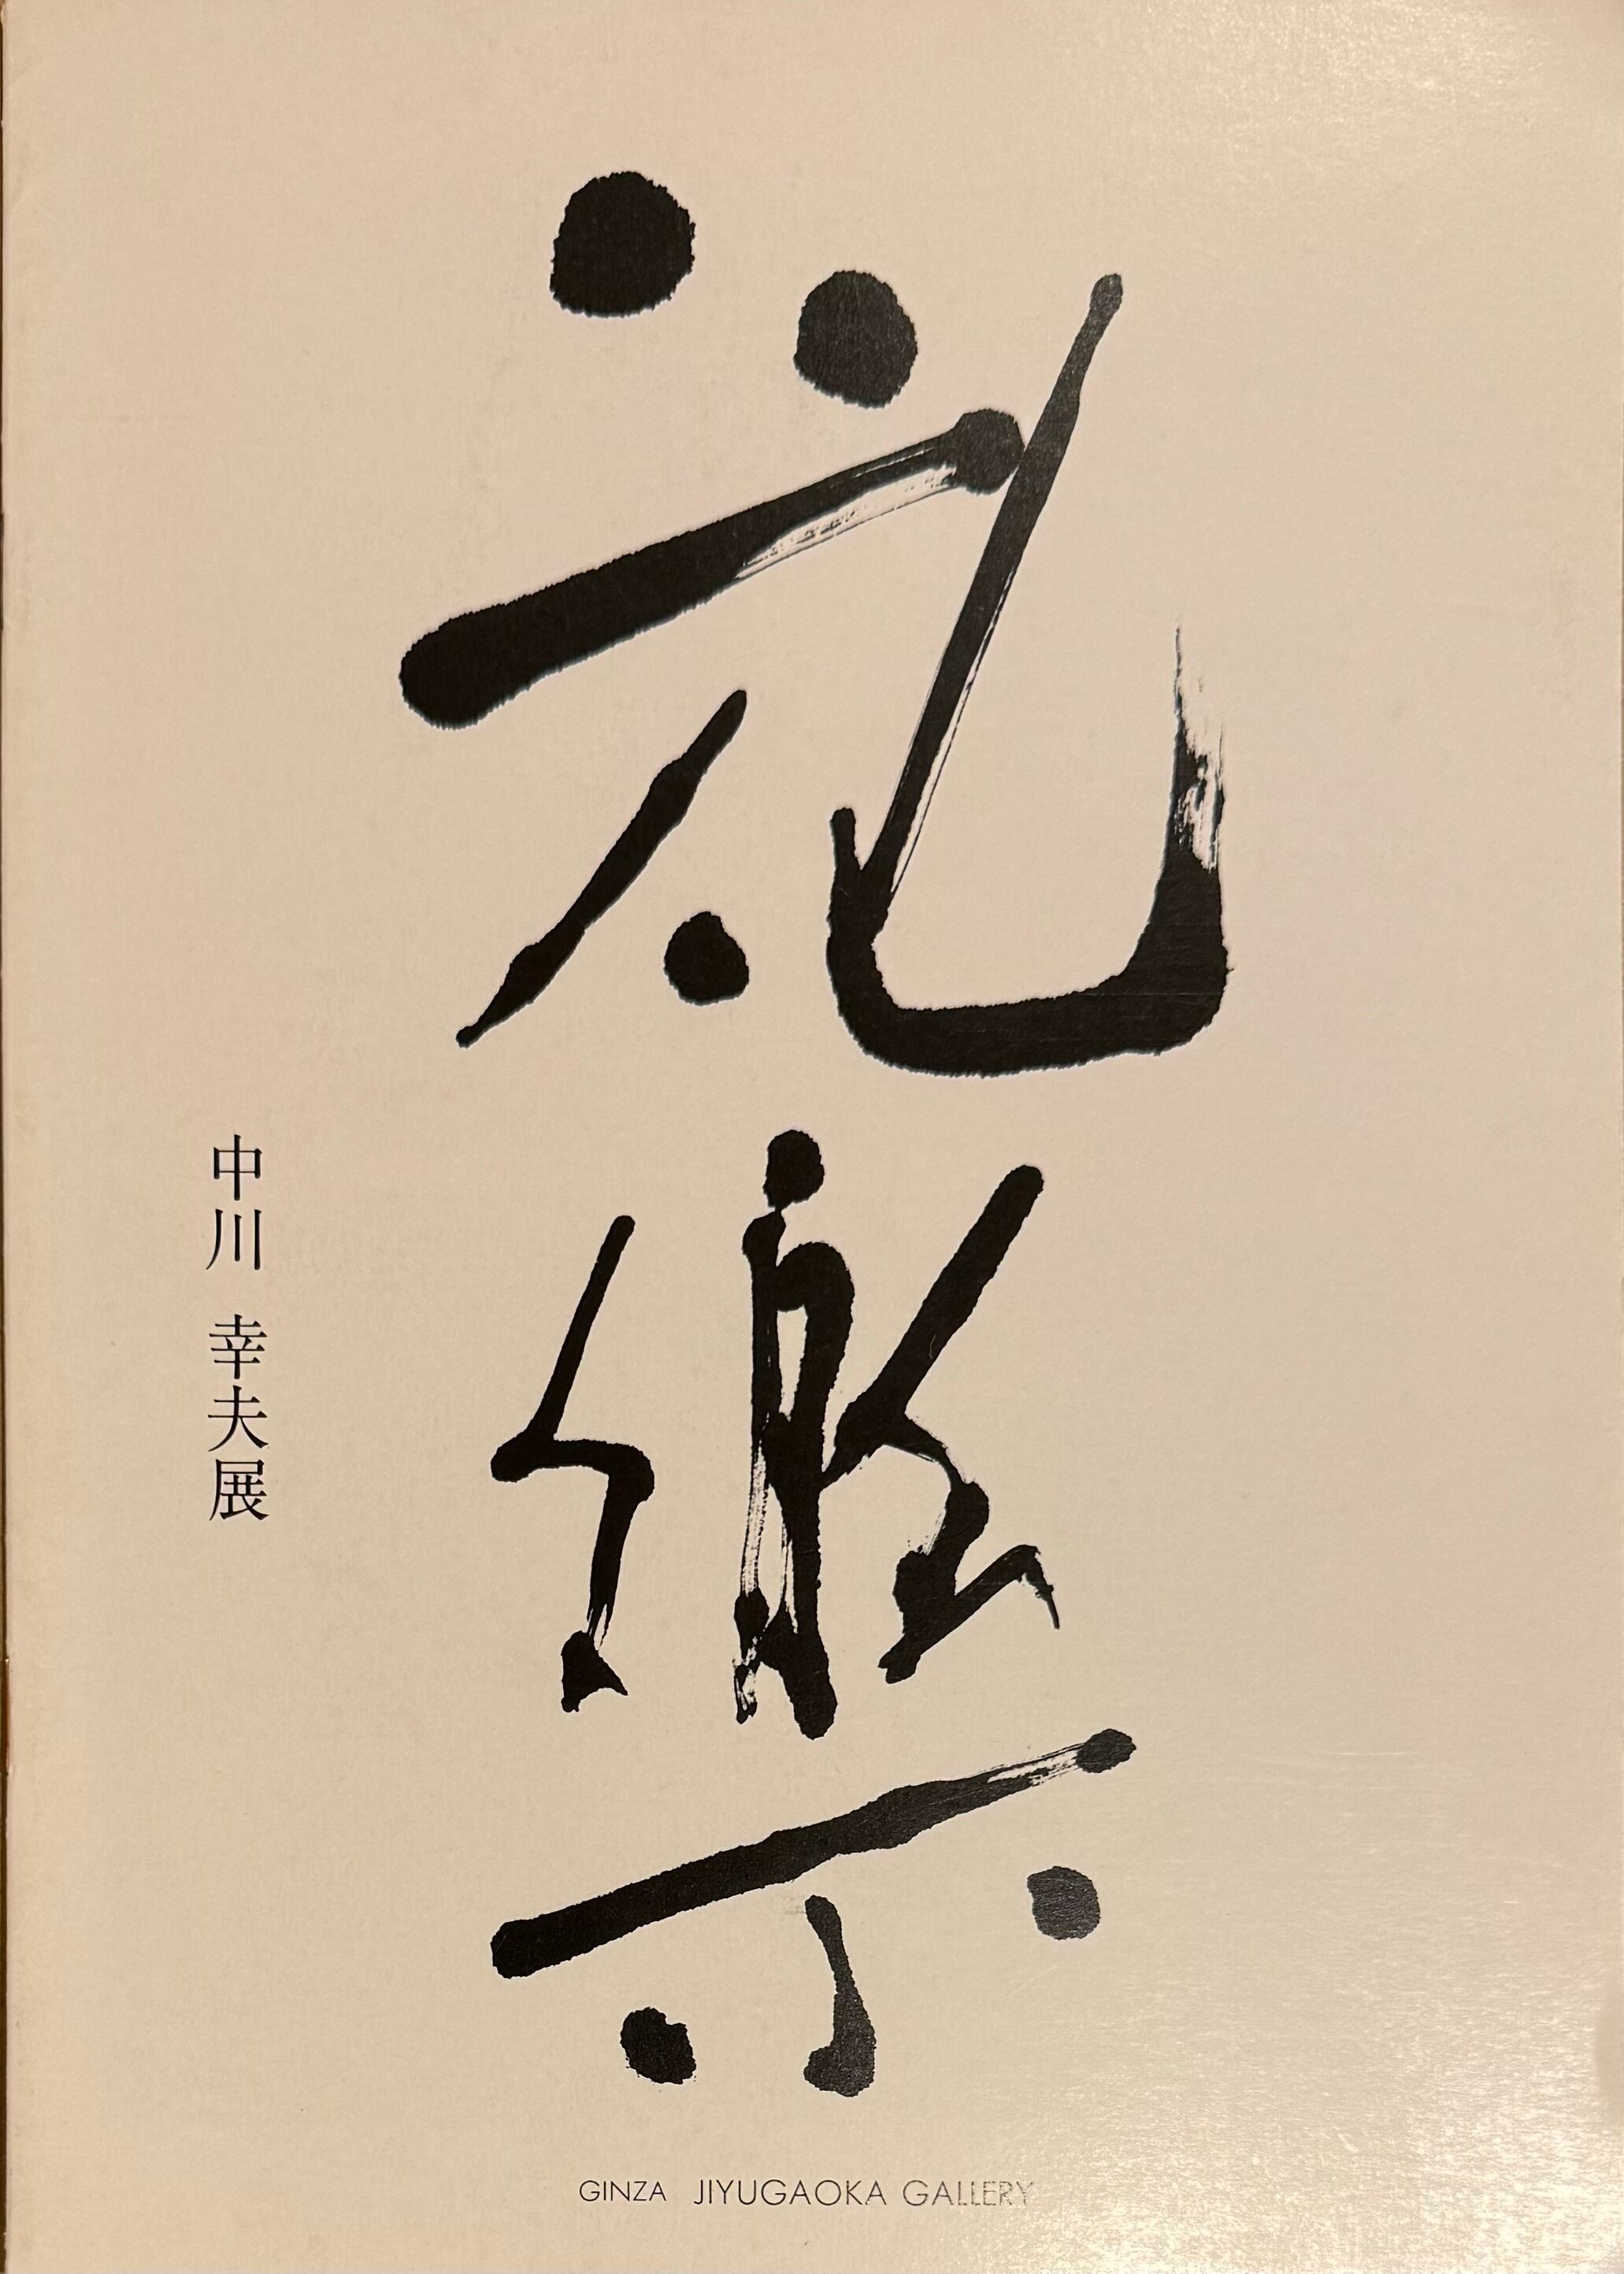 礼樂
中川 幸夫展
GINZA JIYUGAOKA GALLERY